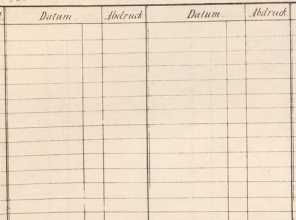 Datum Abdruck Datum Abdruck